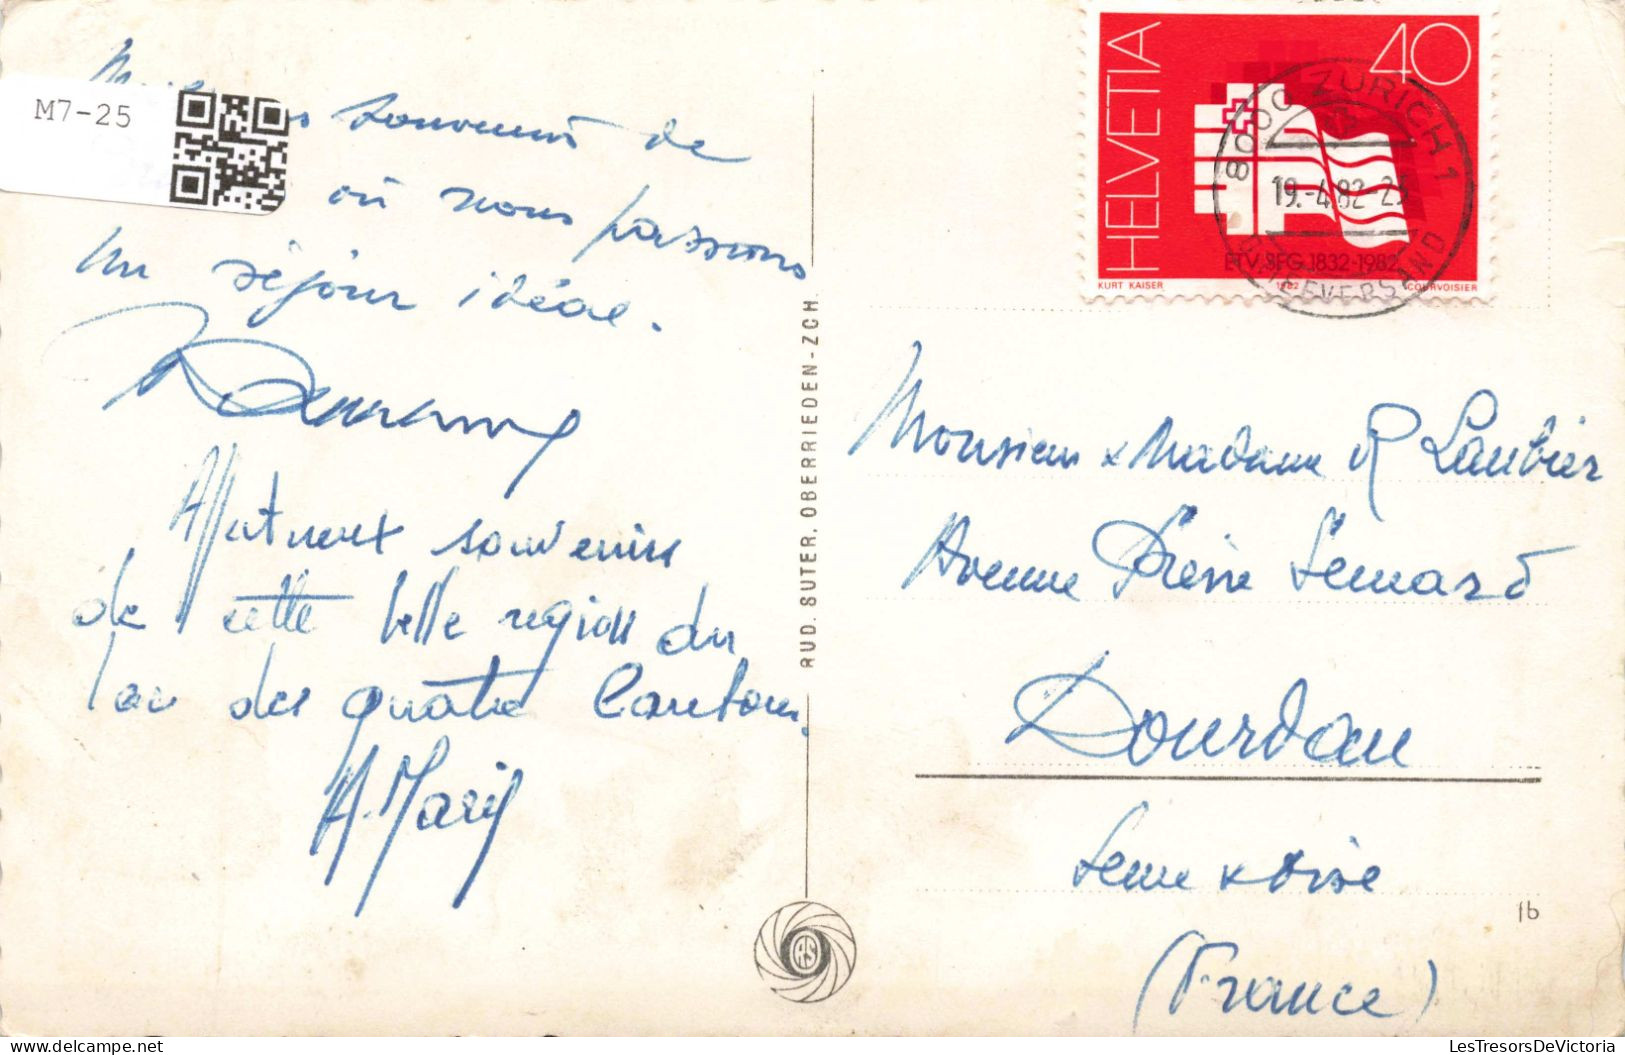 M7-25
souvenirs de
où nous passons
un séjour idéal.
Affectueux souvenirs
de cette belle region du
lac des quatre Cantons.
A. Marif
RUD. SUTER, OBERRIEDEN-ZCH
HELVETIA
40
8000 ZÜRICH 1
19.-4.82-25
BRIEFVERSAND
ETV.SFG.1832-1982
KURT KAISER 1982 COURVOISIER
Monsieur & Madame R Laubier
Avenue Pierre Semard
Dourdan
Seine & Oise
(France)
RS
1b
LesTresorsDeVictoria